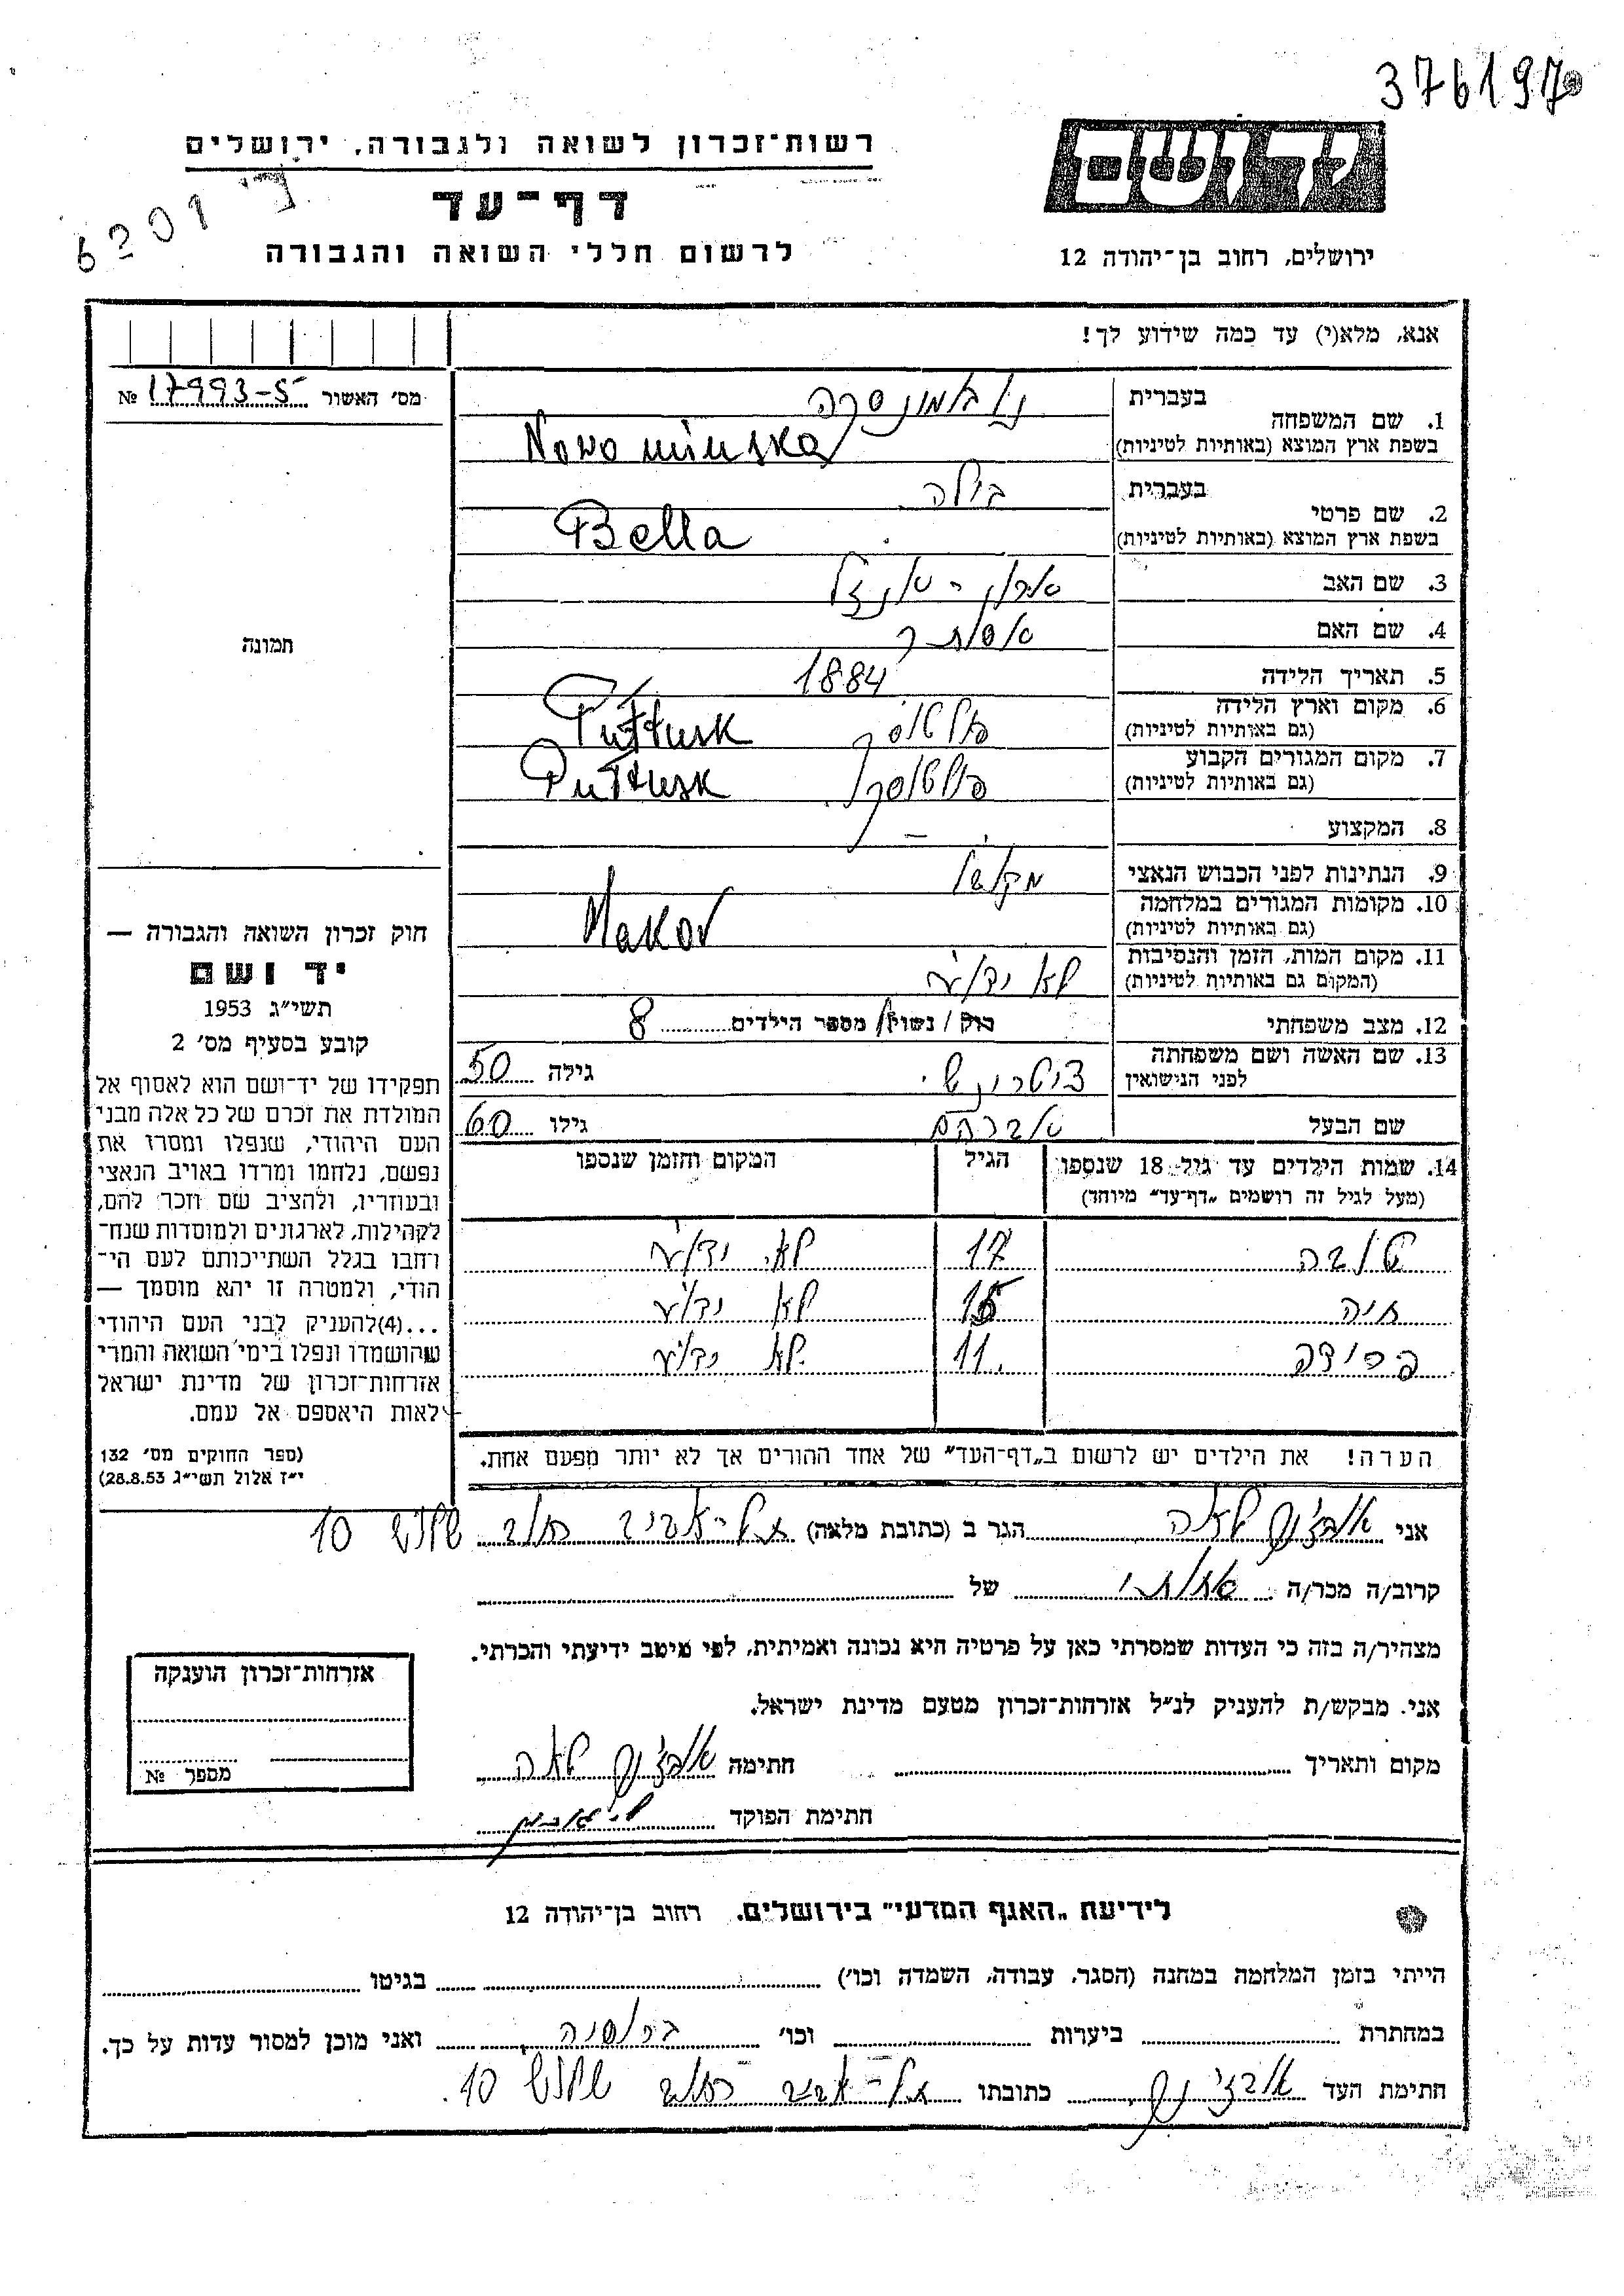 376197
רשות־זכרון לשואה ולגבורה, ירושלים
יד ושם
דף־עד
6201
לרשום חללי השואה והגבורה
ירושלים, רחוב בן־יהודה 12
אנא, מלא(י) עד כמה שידוע לך!
מס׳ האשור 17993-5 №
1. שם המשפחה בעברית
בשפת ארץ המוצא (באותיות לטיניות) Nowominska
2. שם פרטי בעברית בילה
בשפת ארץ המוצא (באותיות לטיניות) Bella
3. שם האב
4. שם האם אסתר
5. תאריך הלידה 1884
6. מקום וארץ הלידה פולטוסק Pułtusk
(גם באותיות לטיניות)
7. מקום המגורים הקבוע פולטוסק Pułtusk
(גם באותיות לטיניות)
8. המקצוע —
9. הנתינות לפני הכבוש הנאצי
10. מקומות המגורים במלחמה Makov
(גם באותיות לטיניות)
11. מקום המות, הזמן והנסיבות לא ידוע
(המקום גם באותיות לטיניות)
12. מצב משפחתי רוק / נשוי/ מספר הילדים 8
13. שם האשה ושם משפחתה
לפני הנישואין גילה 50
שם הבעל אברהם גילו 60
14. שמות הילדים עד גיל 18 שנספו הגיל המקום והזמן שנספו
(מעל לגיל זה רושמים „דף־עד” מיוחד)
טובה 17 לא ידוע
חיה 15 לא ידוע
פרידה 11 לא ידוע
הערה! את הילדים יש לרשום ב„דף־העד” של אחד ההורים אך לא יותר מפעם אחת.
תמונה
חוק זכרון השואה והגבורה —
יד ושם
תשי״ג 1953
קובע בסעיף מס׳ 2
תפקידו של יד־ושם הוא לאסוף אל
המולדת את זכרם של כל אלה מבני
העם היהודי, שנפלו ומסרו את
נפשם, נלחמו ומרדו באויב הנאצי
ובעוזריו, ולהציב שם וזכר להם,
לקהילות, לארגונים ולמוסדות שנח־
רחבו בגלל השתייכותם לעם הי־
הודי, ולמטרה זו יהא מוסמך —
...(4)להעניק לבני העם היהודי
שהושמדו ונפלו בימי השואה והמרי
אזרחות־זכרון של מדינת ישראל
לאות היאספם אל עמם.
(ספר החוקים מס׳ 132
י״ז אלול תשי״ג 28.8.53)
אני לאה הגר ב (כתובת מלאה) תל־אביב רחוב 10
קרוב/ה מכר/ה אחותי של
מצהיר/ה בזה כי העדות שמסרתי כאן על פרטיה היא נכונה ואמיתית, לפי מיטב ידיעתי והכרתי.
אני מבקש/ת להעניק לנ״ל אזרחות־זכרון מטעם מדינת ישראל.
מקום ותאריך חתימה לאה
חתימת הפוקד
אזרחות־זכרון הוענקה
מספר №
לידיעת „האגף המדעי” בירושלים. רחוב בן־יהודה 12
הייתי בזמן המלחמה במחנה (הסגר, עבודה, השמדה וכו׳) בגיטו
במחתרת ביערות וכו׳ ברוסיה ואני מוכן למסור עדות על כך.
חתימת העד כתובתו תל־אביב רחוב 10.